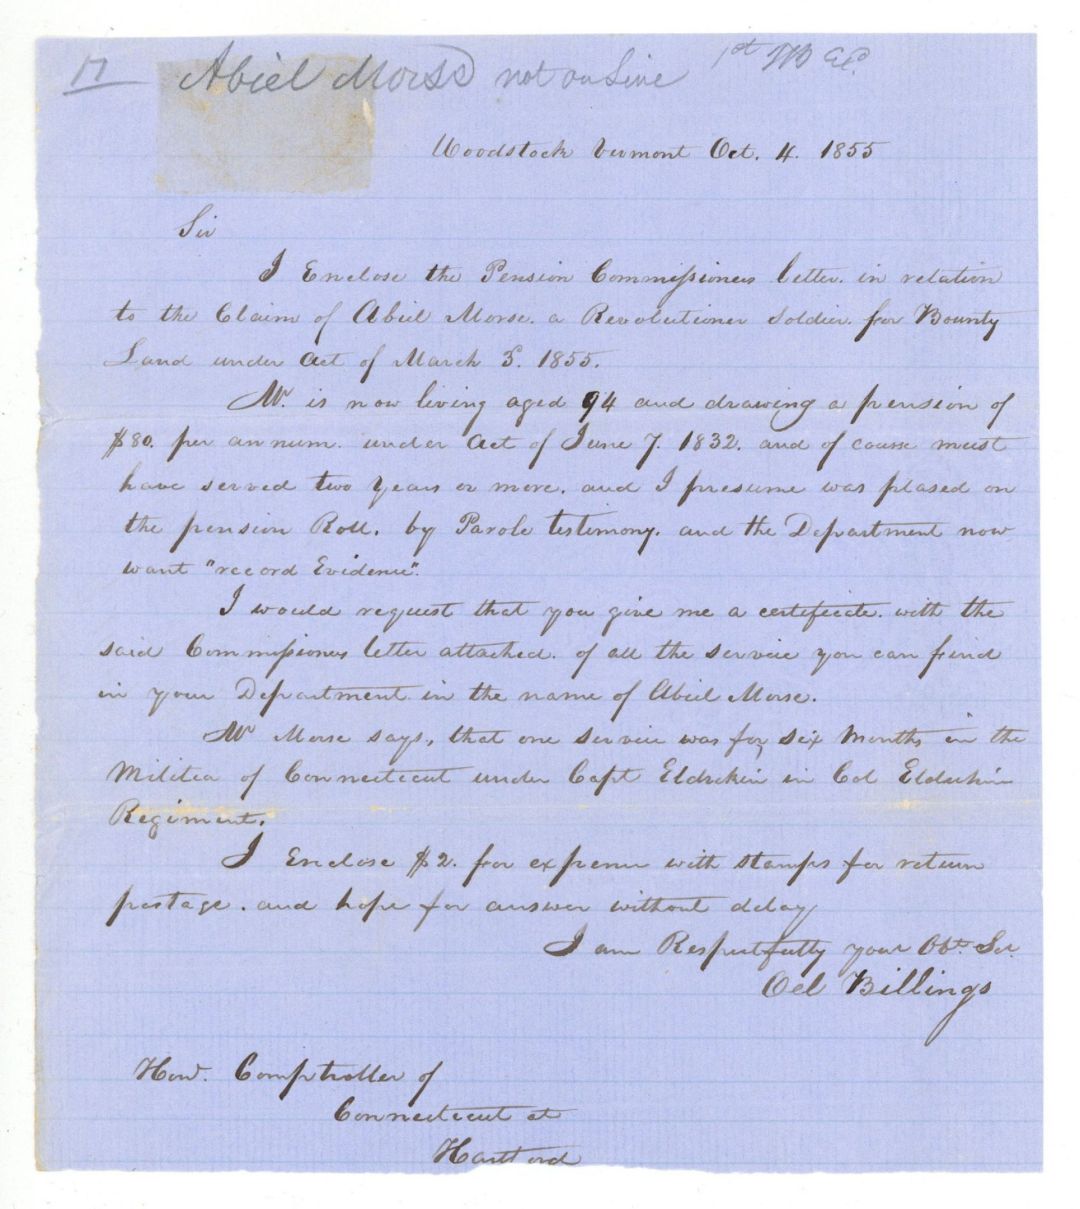 17 Abiel Morse not on Line 1st
Woodstock Vermont Oct. 4. 1855
Sir
I Enclose the Pension Commissioners letter. in relation
to the Claim of Abiel Morse. a Revolutioner Soldier. for Bounty
Land under Act of March 3. 1855.
Mr. is now living aged 94 and drawing a pension of
$80. per annum. under Act of June 7. 1832. and of course must
have served two years or more. and I presume was plased on
the pension Roll. by Parole testimony. and the Department now
want "record Evidence".
I would request that you give me a certificate. with the
said Commissioners letter attached. of all the service you can find
in your Department in the name of Abiel Morse.
Mr Morse says, that one service was for six months in the
Militia of Connecticut under Capt Elderkin in Col Elderkin
Regiment.
I Enclose $2. for expense with stamps for return
postage. and hope for answer without delay
I am Respectfully your Obt. Ser.
Oel Billings
Hon. Comptroller of
Connecticut at
Hartford